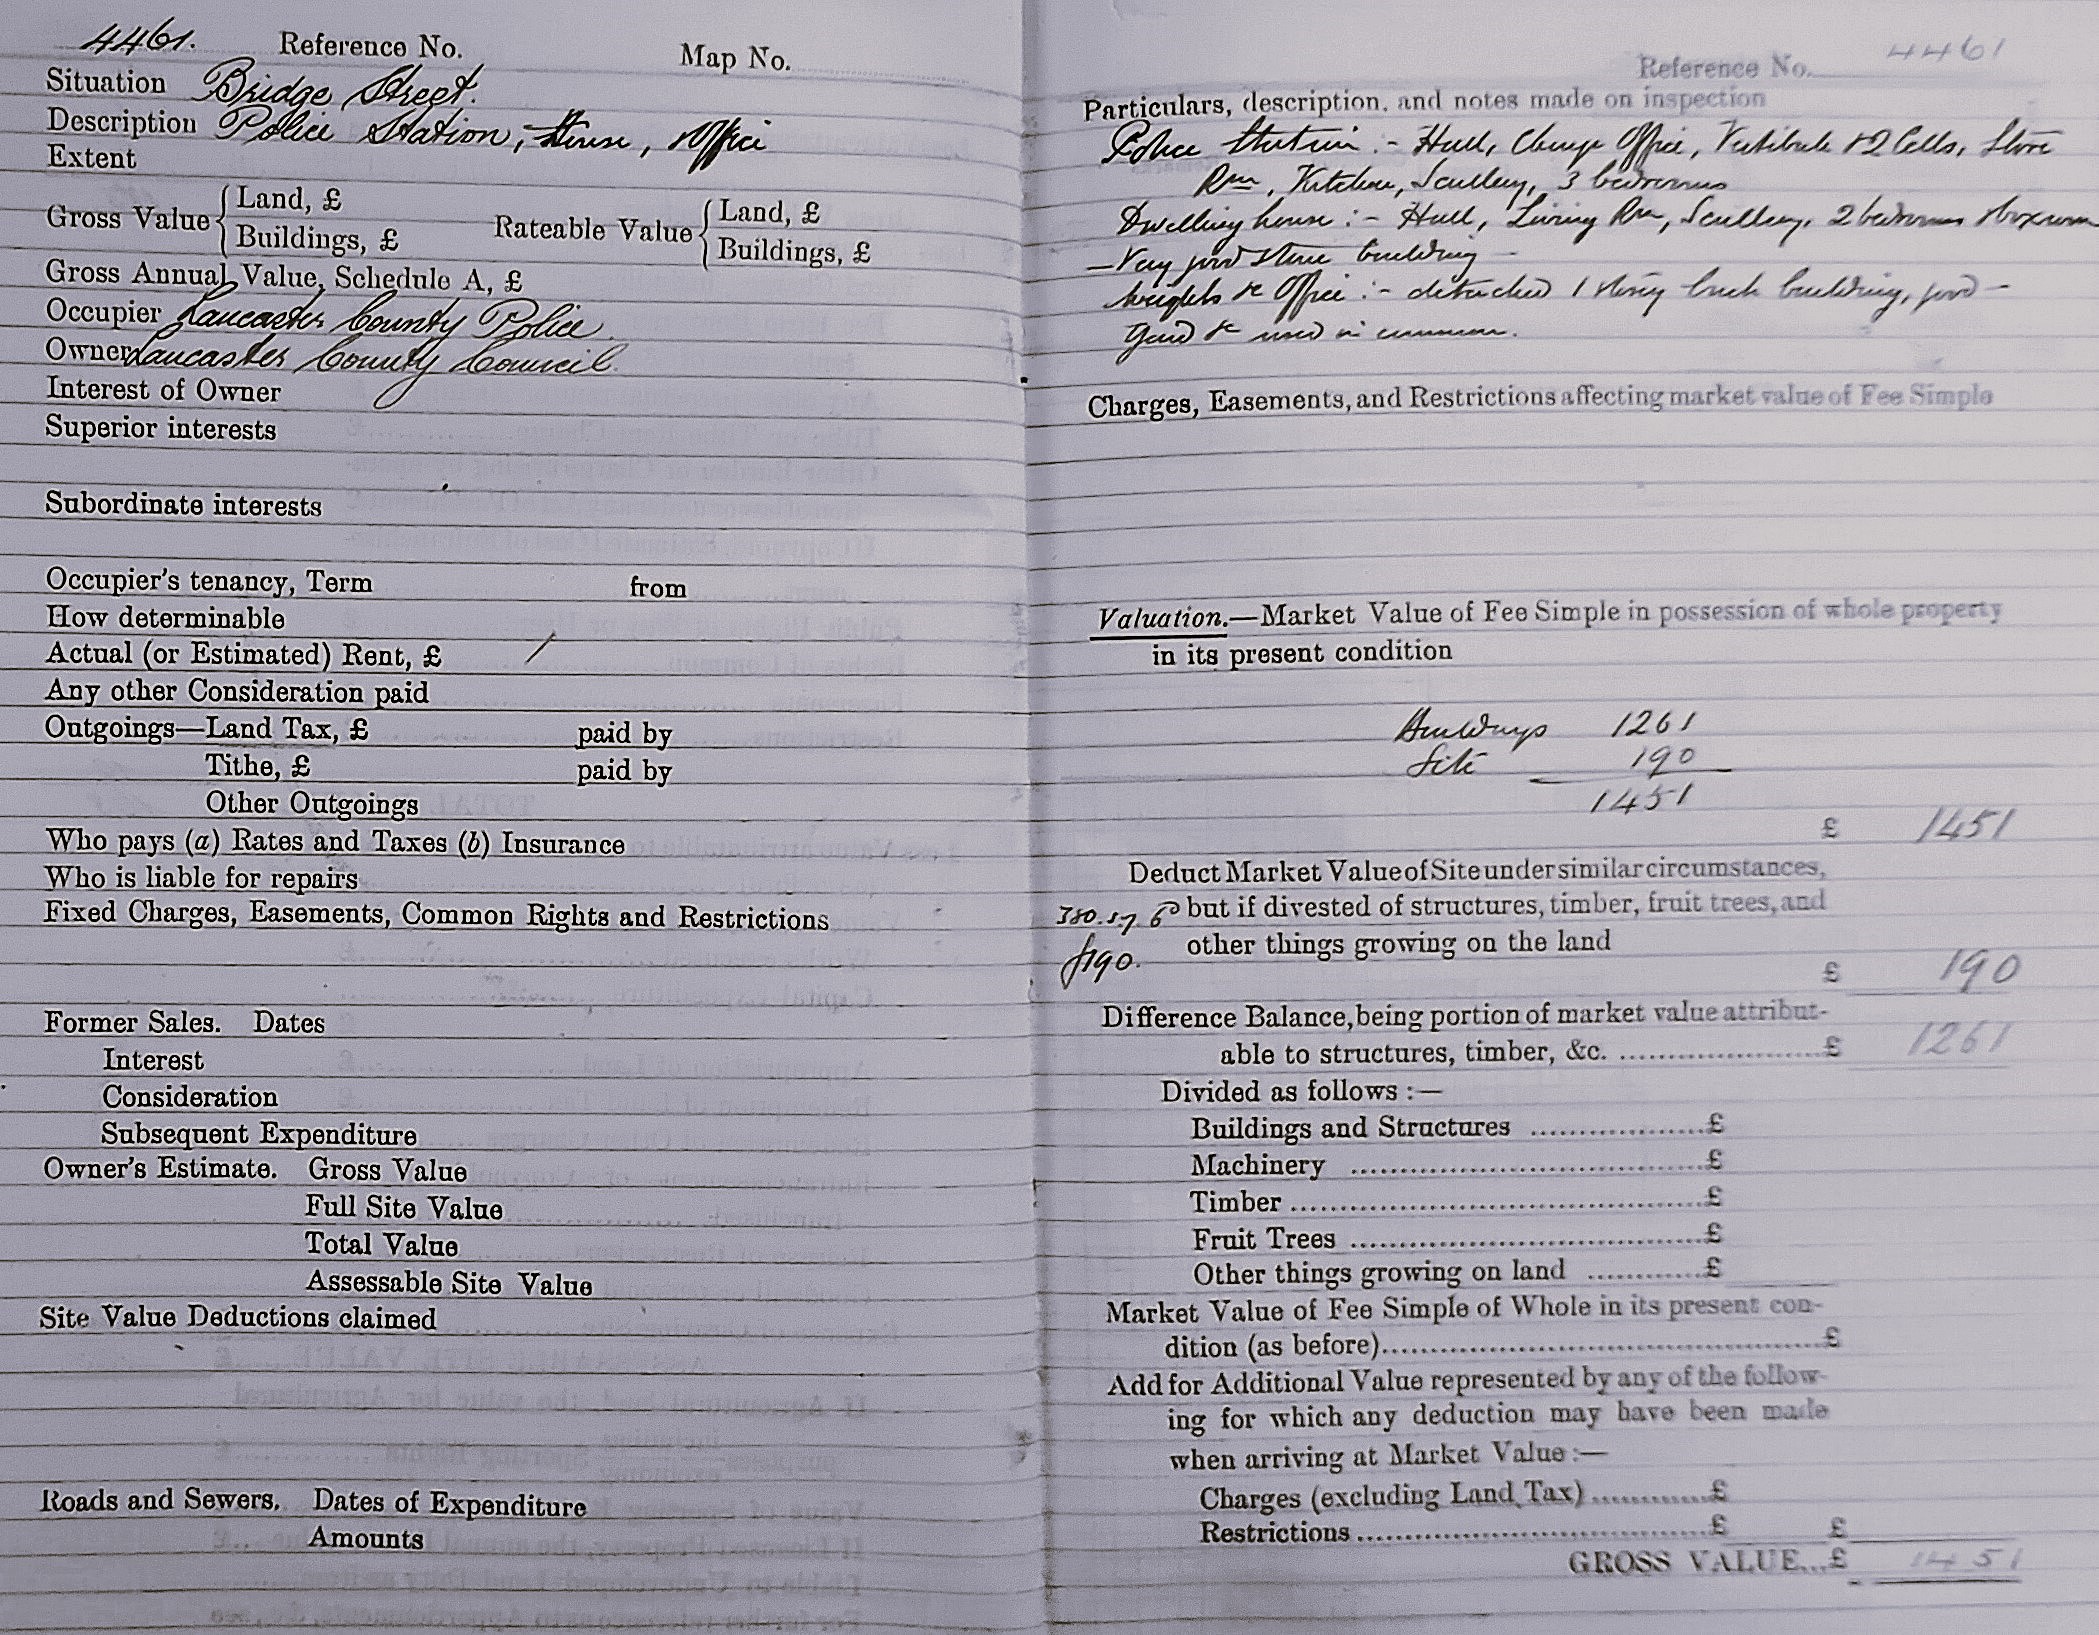 4461. Reference No. Map No.
Situation Bridge Street.
Description Police Station, House, Office
Extent
Gross Value { Land, £ Rateable Value { Land, £
Buildings, £ Buildings, £
Gross Annual Value, Schedule A, £
Occupier Lancaster County Police.
Owner Lancaster County Council.
Interest of Owner
Superior interests
Subordinate interests
Occupier's tenancy, Term from
How determinable
Actual (or Estimated) Rent, £ /
Any other Consideration paid
Outgoings—Land Tax, £ paid by
Tithe, £ paid by
Other Outgoings
Who pays (a) Rates and Taxes (b) Insurance
Who is liable for repairs
Fixed Charges, Easements, Common Rights and Restrictions
Former Sales. Dates
Interest
Consideration
Subsequent Expenditure
Owner's Estimate. Gross Value
Full Site Value
Total Value
Assessable Site Value
Site Value Deductions claimed
Roads and Sewers. Dates of Expenditure
Amounts
Reference No. 4461
Particulars, description, and notes made on inspection
Police Station :- Hall, Charge Office, Vestibule & 2 Cells, Store
Rm, Kitchen, Scullery, 3 bedrooms
Dwelling house :- Hall, Living Rm, Scullery, 2 bedrooms & boxroom
— Very good stone building —
Weights &c Office :- detached 1 storey brick building, good —
Yard &c used in common.
Charges, Easements, and Restrictions affecting market value of Fee Simple
Valuation.—Market Value of Fee Simple in possession of whole property
in its present condition
Buildings 1261
Site 190
1451
£ 1451
Deduct Market Value of Site under similar circumstances,
but if divested of structures, timber, fruit trees, and
other things growing on the land
£190.
£ 190
Difference Balance, being portion of market value attribut-
able to structures, timber, &c. ........ £ 1261
Divided as follows :—
Buildings and Structures ........ £
Machinery ........ £
Timber ........ £
Fruit Trees ........ £
Other things growing on land ........ £
Market Value of Fee Simple of Whole in its present con-
dition (as before) ........ £
Add for Additional Value represented by any of the follow-
ing for which any deduction may have been made
when arriving at Market Value :—
Charges (excluding Land Tax) ........ £
Restrictions ........ £ £
GROSS VALUE... £ 1451